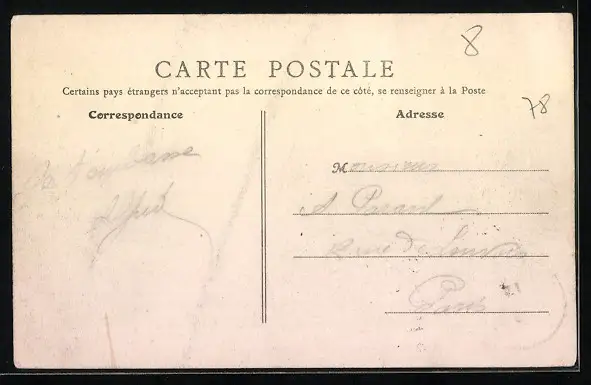 8
CARTE POSTALE
Certains pays étrangers n'acceptant pas la correspondance de ce côté, se renseigner à la Poste
78
Correspondance
Adresse
Monsieur
A
Paris